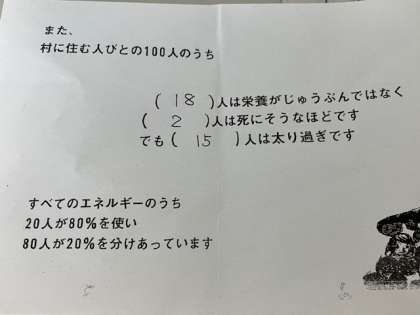 また、
村に住む人びとの100人のうち
( 18 )人は栄養がじゅうぶんではなく
( 2 )人は死にそうなほどです
でも( 15 )人は太り過ぎです
すべてのエネルギーのうち
20人が80%を使い
80人が20%を分けあっています